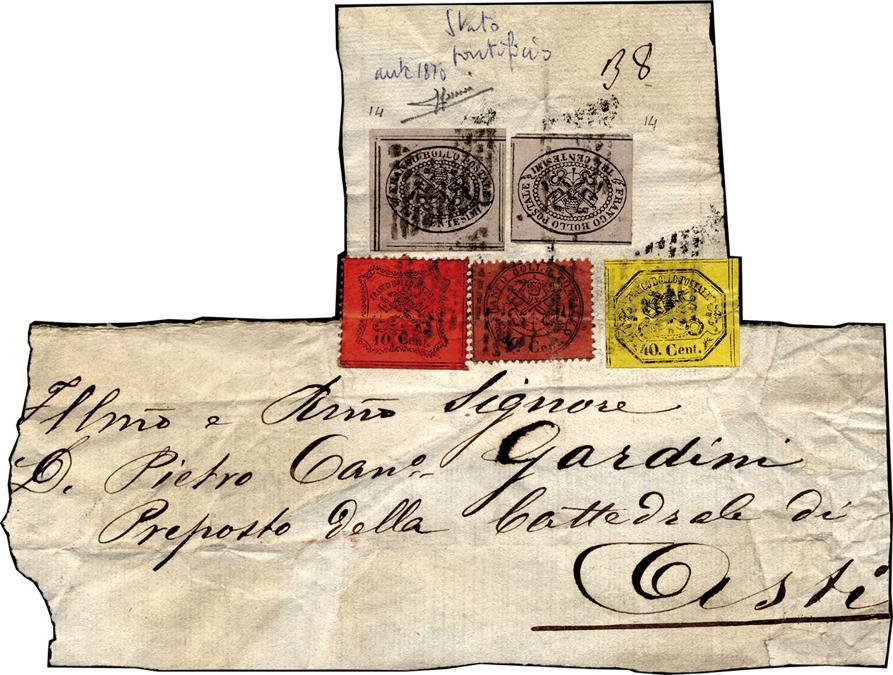 Stato
pontificio
ante 1870
B 8
14
14
FRANCO BOLLO POSTALE
CENTESIMI
FRANCO BOLLO POSTALE
CENTESIMI
FRANCO BOLLO POSTALE
10. Cent.
BOLLO
Cent.
FRANCO BOLLO POSTALE
40. Cent.
Illmo e Rmo Signore
D. Pietro Cano. Gardini
Preposto della Cattedrale di
Asti